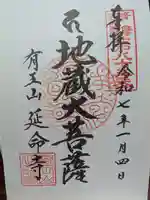 奉拝 令和七年一月四日
地蔵大菩薩
有王山 延命寺